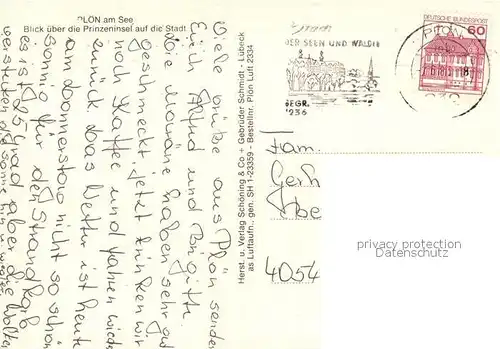 PLÖN am See
Blick über die Prinzeninsel auf die Stadt
Viele Grüße aus Plön senden
Euch Alfred und Brigitte.
Die Maräne haben sehr gut
geschmeckt, jetzt trinken wir
noch Kaffee und fahren wieder
zurück das Wetter ist heute
am Donnerstag nicht so schön
sonnig für den Strandkorb
es ist 25 grad aber die Wolken
verstecken die Sonne hin u. wieder
Herst. u. Verlag Schöning & Co + Gebrüder Schmidt · Lübeck
as Luftaufn., gen. SH 1-23359 - Bestellnr. Plön Luft 2334
DER SEEN UND WÄLDER
GEGR.
1236
PLÖN
DEUTSCHE BUNDESPOST
60
Fam.
Gerh
4054
privacy protection
Datenschutz